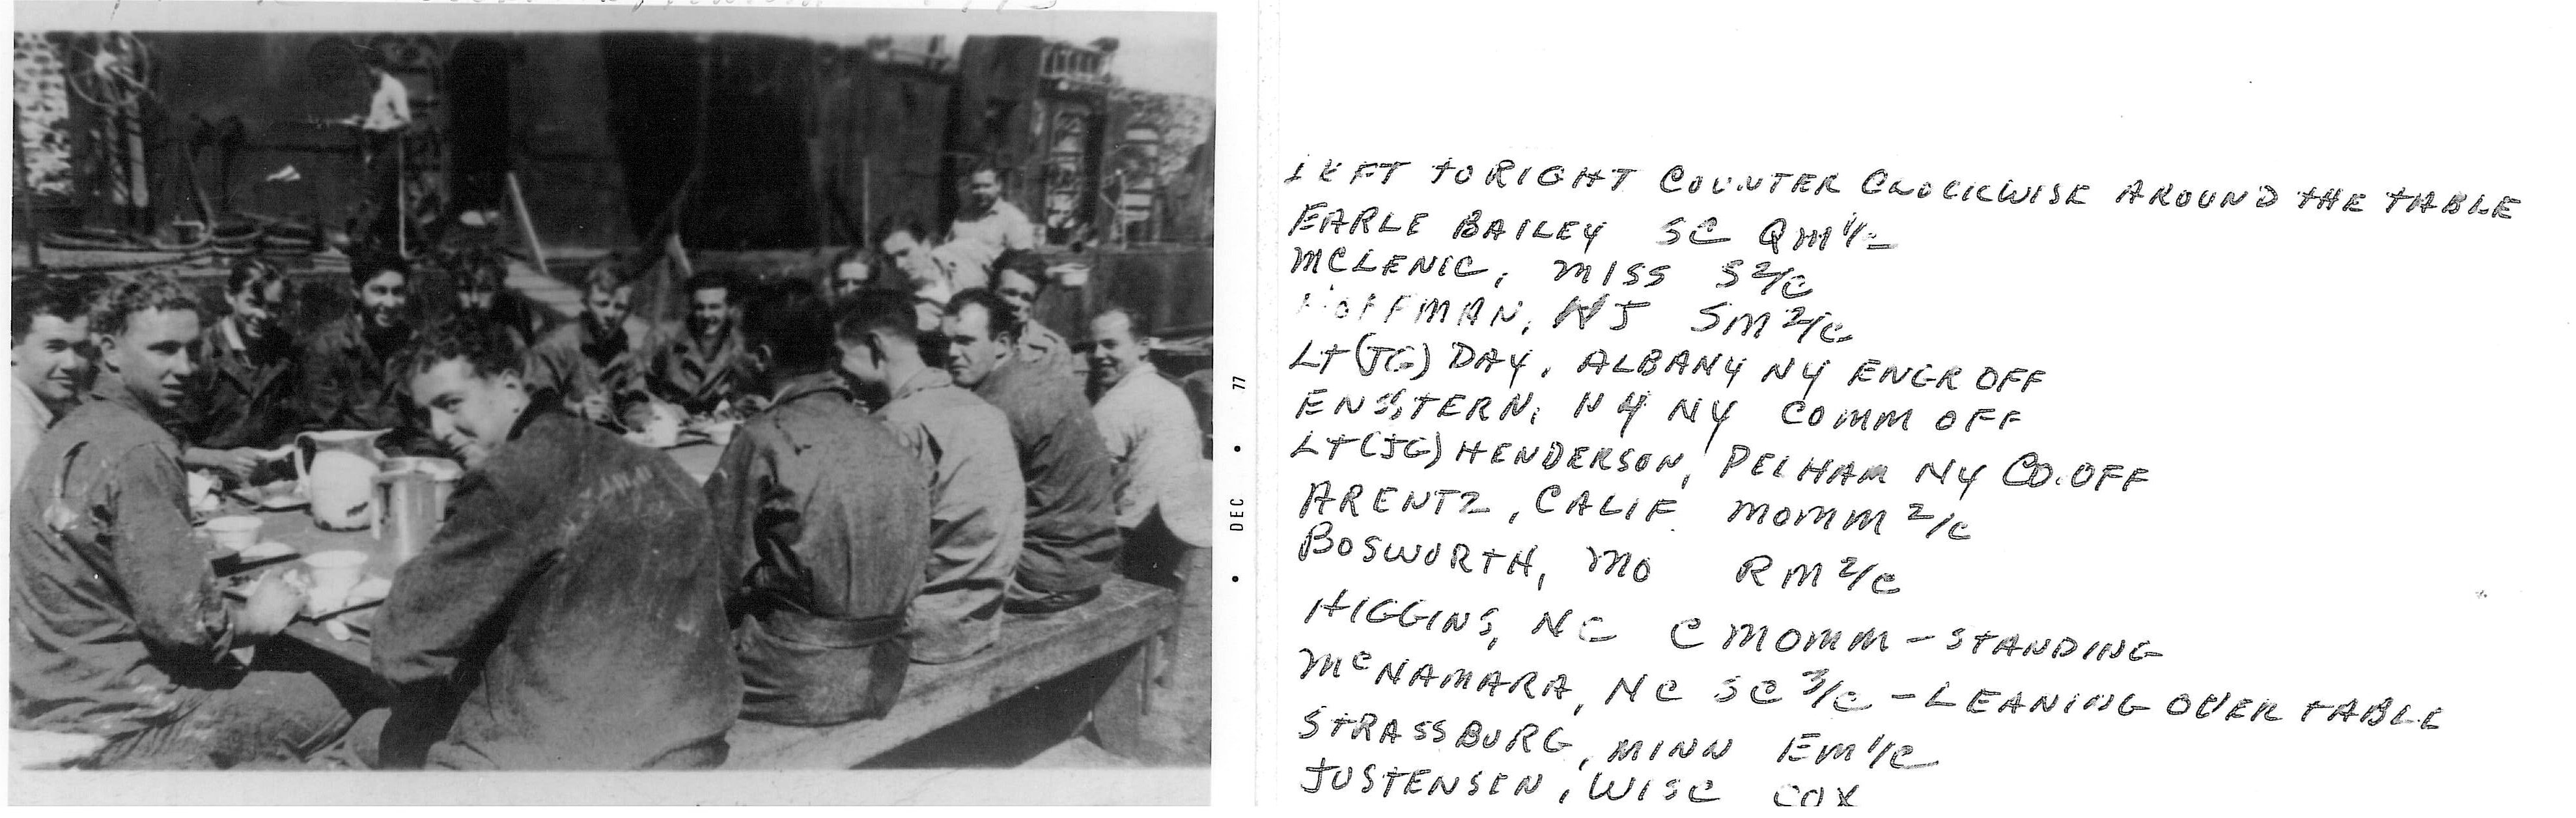 DEC • 77
LEFT TO RIGHT COUNTER CLOCKWISE AROUND THE TABLE
EARLE BAILEY SC QM 1/c
MCLENIC, MISS S 2/C
HOFFMAN, NJ SM 2/C
LT (JG) DAY, ALBANY NY ENGR OFF
ENS STERN, NY NY COMM OFF
LT (JG) HENDERSON, PELHAM NY CO. OFF
ARENTZ, CALIF MOMM 2/C
BOSWORTH, MO RM 2/C
HIGGINS, NC C MOMM - STANDING
McNAMARA, NC SC 3/C - LEANING OVER TABLE
STRASSBURG, MINN EM 1/C
JUSTENSEN, WISC COX